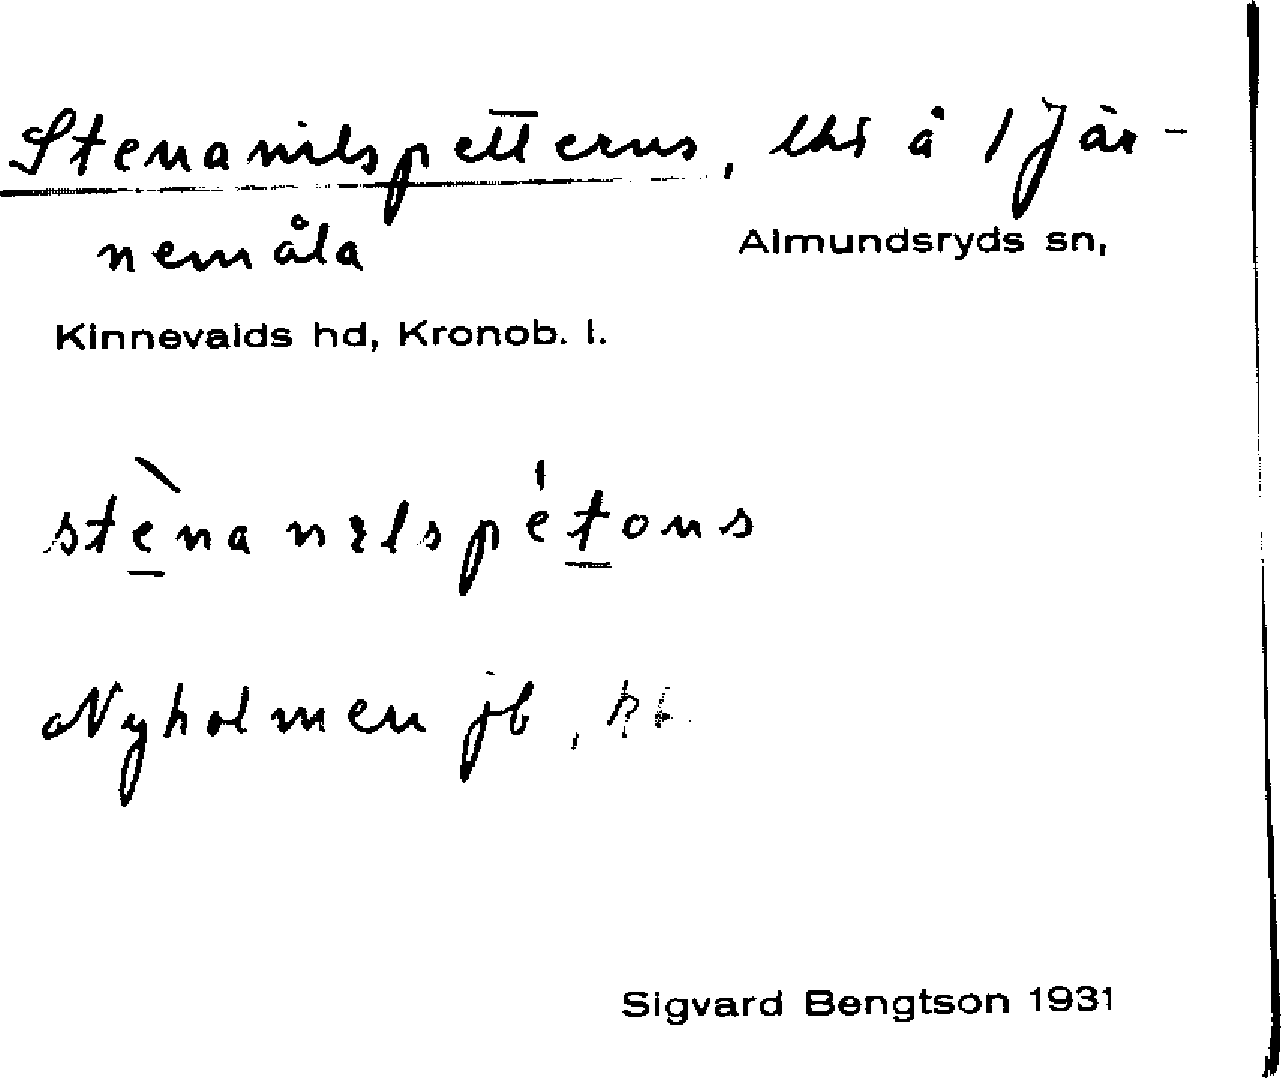 Stenanilspetterns, lht å 1 Jär-
nemåla Almundsryds sn,
Kinnevalds hd, Kronob. l.
stèna nɪlspétons
Nyholmen jb, kb.
Sigvard Bengtson 1931